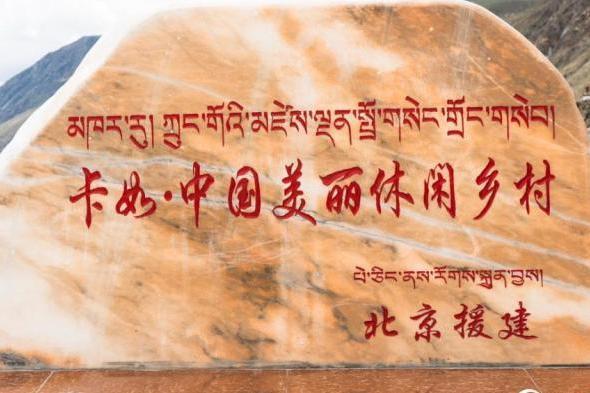 མཁར་རུ། ཀྲུང་གོའི་མཛེས་ལྡན་སྤྲོ་གསེང་གྲོང་གསེབ།
卡如·中国美丽休闲乡村
པེ་ཅིང་ནས་རོགས་སྐྲུན་བྱས།
北京援建